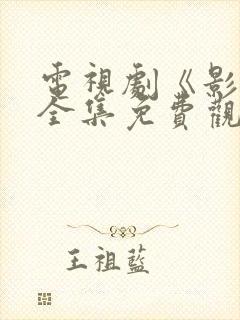 電視劇《影
全集免費觀
王祖藍